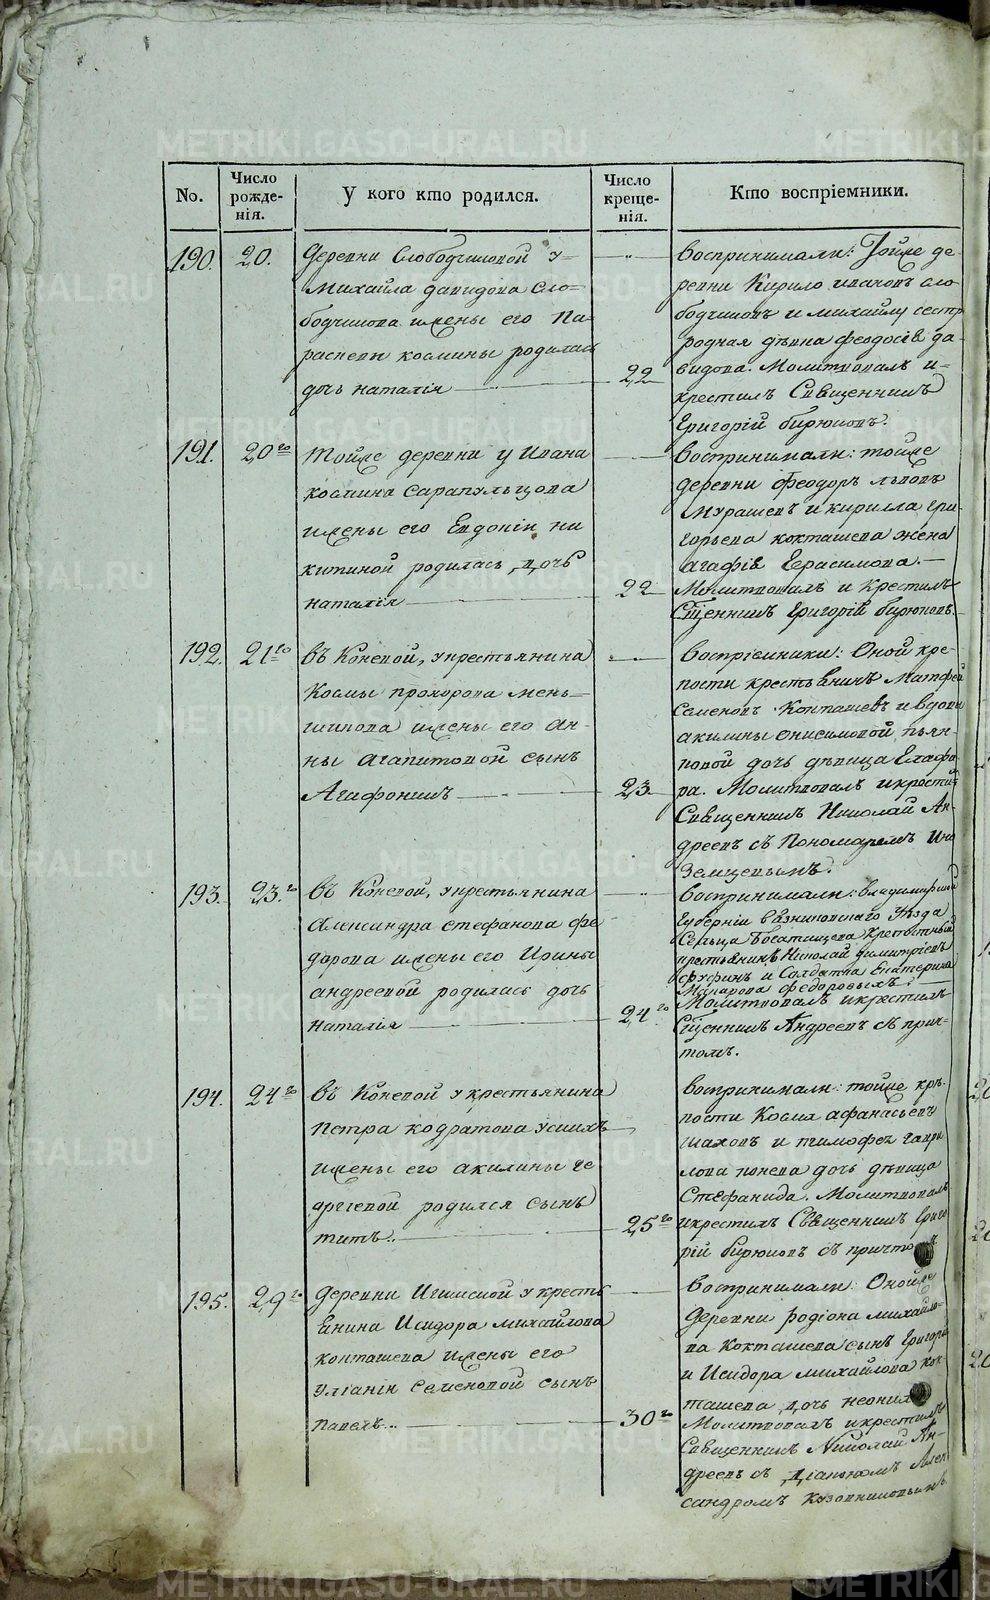 No.
Число
рожде-
нія.
У кого кто родился.
Число
креще-
нія.
Кто воспріемники.
190.
20.
Деревни Слободчиковой у
Михайла давидова Сло=
бодчикова жены его Па
распевы космины родилась
дочь наталія
22
воспринимали: Тойже де
ревни Кирило ивановъ сло
бодчиковъ и михайлу сест
родная дѣвка феодосія да
видова. Молитвовалъ и
крестилъ Священникъ
Григорій бирюковъ.
191.
20го
тойже деревни у Ивана
космина сарапульцова
жены его Евдокіи ни
китиной родилась дочь
наталія
22
воспринимали: тойже
деревни Феодоръ львовъ
Мурашевъ и кирилла гри
горьева кокташева жена
агафія Герасимова.
Молитвовалъ и Крестилъ
Сщенникъ Григорій бирюковъ.
192.
21го
въ Коневой, укрестьянина
Космы прохорова мень-
шикова жены его ан-
ны агапитовой сынъ
Агафоникъ
23
воспріемники: Оной кре-
пости крестьянинъ Матфей
Семеновъ Кокташевъ и вдовы
акилины онисимовой пьян-
ковой дочь дѣвица Глафи
ра. Молитвовалъ и крестилъ
Священникъ Николай Ан-
дреевъ съ Пономаремъ Ино
земцевымъ.
193.
23го
въ Коневой, укрестьянина
Александра стефанова фе
дорова жены его Ирины
андреевой родилась дочь
наталія
24го
воспринимали: владимирской
Губерніи вязниковскаго Уѣзда
Сельца Богатищева Крепостный
крестьянинъ Николай димитріевъ
и Солдатка Екатерина
Макарова федоровыхъ:
Молитвовалъ икрестилъ
Сщенникъ Андреевъ съ прич-
томъ.
194.
24го
въ Коневой укрестьянина
Петра кодратова
жены его акилины ге
оргіевой родился сынъ
титъ..
25го
воспринимали: тойже крѣ-
пости Косма афанасьевъ
шаховъ и тимофея гаври
лова конева дочь дѣвица
Стефанида. Молитвовалъ
икрестилъ Священникъ Григо
рій бирюковъ съ причтомъ
195.
29го
деревни Игишской укресть
янина Исидора михайлова
кокташева жены его
уліаніи семеновой сынъ
павелъ...
30го
воспринимали: Онойже
деревни родіона михайло-
ва Кокташева сынъ Григорій
и Исидора михайлова кок
ташева дочь неонила
Молитвовалъ икрестилъ
Священникъ Николай Ан-
дреевъ съ Діакономъ Алек
сандромъ Кузовниковымъ